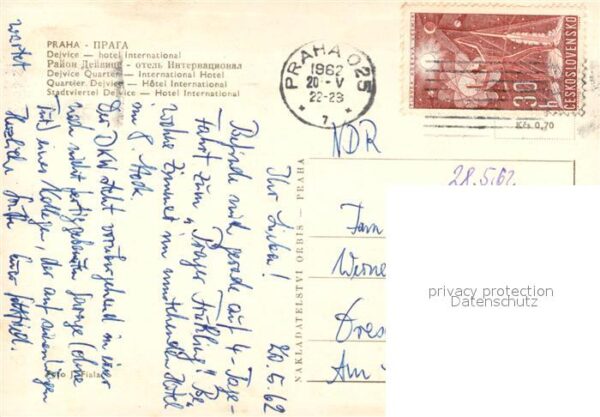 PRAHA - ПРАГА
Dejvice — hotel International
Район Дейвице - отель Интернационал
Dejvice Quarter — International Hotel
Quartier Dejvice — Hôtel International
Stadtviertel Dejvice — Hotel International
PRAHA 025
1962
20 -V
22-23
7
ČESKOSLOVENSKO
Kčs 0,70
NDR
28.5.62.
NAKLADATELSTVÍ ORBIS — PRAHA
20.5.62
Ihr Lieben!
Befinde mich gerade auf 4-Tage-
fahrt zum "Prager Frühling". Be-
wohne Zimmer im umstehenden Hotel
im 8. Stock.
Der DKW steht vorübergehend in einer
noch nicht fertiggebauten Garage (ohne
Tür) eines Kollegen, der auf
wartet
Herzliche Grüße Euer
Foto J. Fiala
Fam
Werne
Dres
Am
privacy protection
Datenschutz